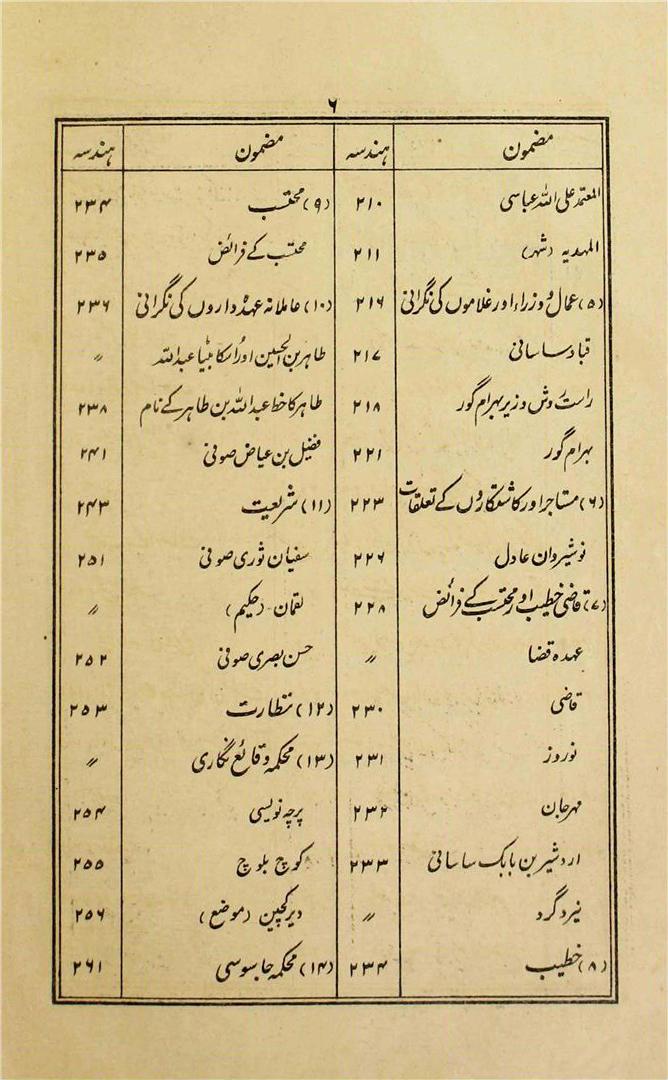 ۶
مضمون ہندسہ مضمون ہندسہ
المعتمد علی اللہ عباسی ۲۱۰ (۹) محتسب ۲۳۴
المہدیہ (شہر) ۲۱۱ محتسب کے فرائض ۲۳۵
(۵) عمال و وزراء اور غلاموں کی نگرانی ۲۱۶ (۱۰) عاملانہ عہدہ داروں کی نگرانی ۲۳۶
قباد ساسانی ۲۱۷ طاہر بن الحسین اور اُسکا بیٹا عبداللہ 〃
راست روش وزیر بہرام گور ۲۱۸ طاہر کا خط عبداللہ بن طاہر کے نام ۲۳۸
بہرام گور ۲۲۱ فضیل بن عیاض صوفی ۲۴۱
(۶) مستاجر اور کاشتکاروں کے تعلقات ۲۲۳ (۱۱) شریعت ۲۴۳
نوشیروان عادل ۲۲۶ سفیان ثوری صوفی ۲۵۱
(۷) قاضی خطیب اور محتسب کے فرائض ۲۲۸ لقمان (حکیم) 〃
عہدہ قضا 〃 حسن بصری صوفی ۲۵۲
قاضی ۲۳۰ (۱۲) نظارت ۲۵۳
نوروز ۲۳۱ (۱۳) محکمہ وقائع نگاری 〃
مہرجان ۲۳۲ پرچہ نویسی ۲۵۴
اردشیر بن بابک ساسانی ۲۳۳ کوچ بلوچ ۲۵۵
یزدگرد 〃 دیرگچین (موضع) ۲۵۶
(۸) خطیب ۲۳۴ (۱۴) محکمہ جاسوسی ۲۶۱